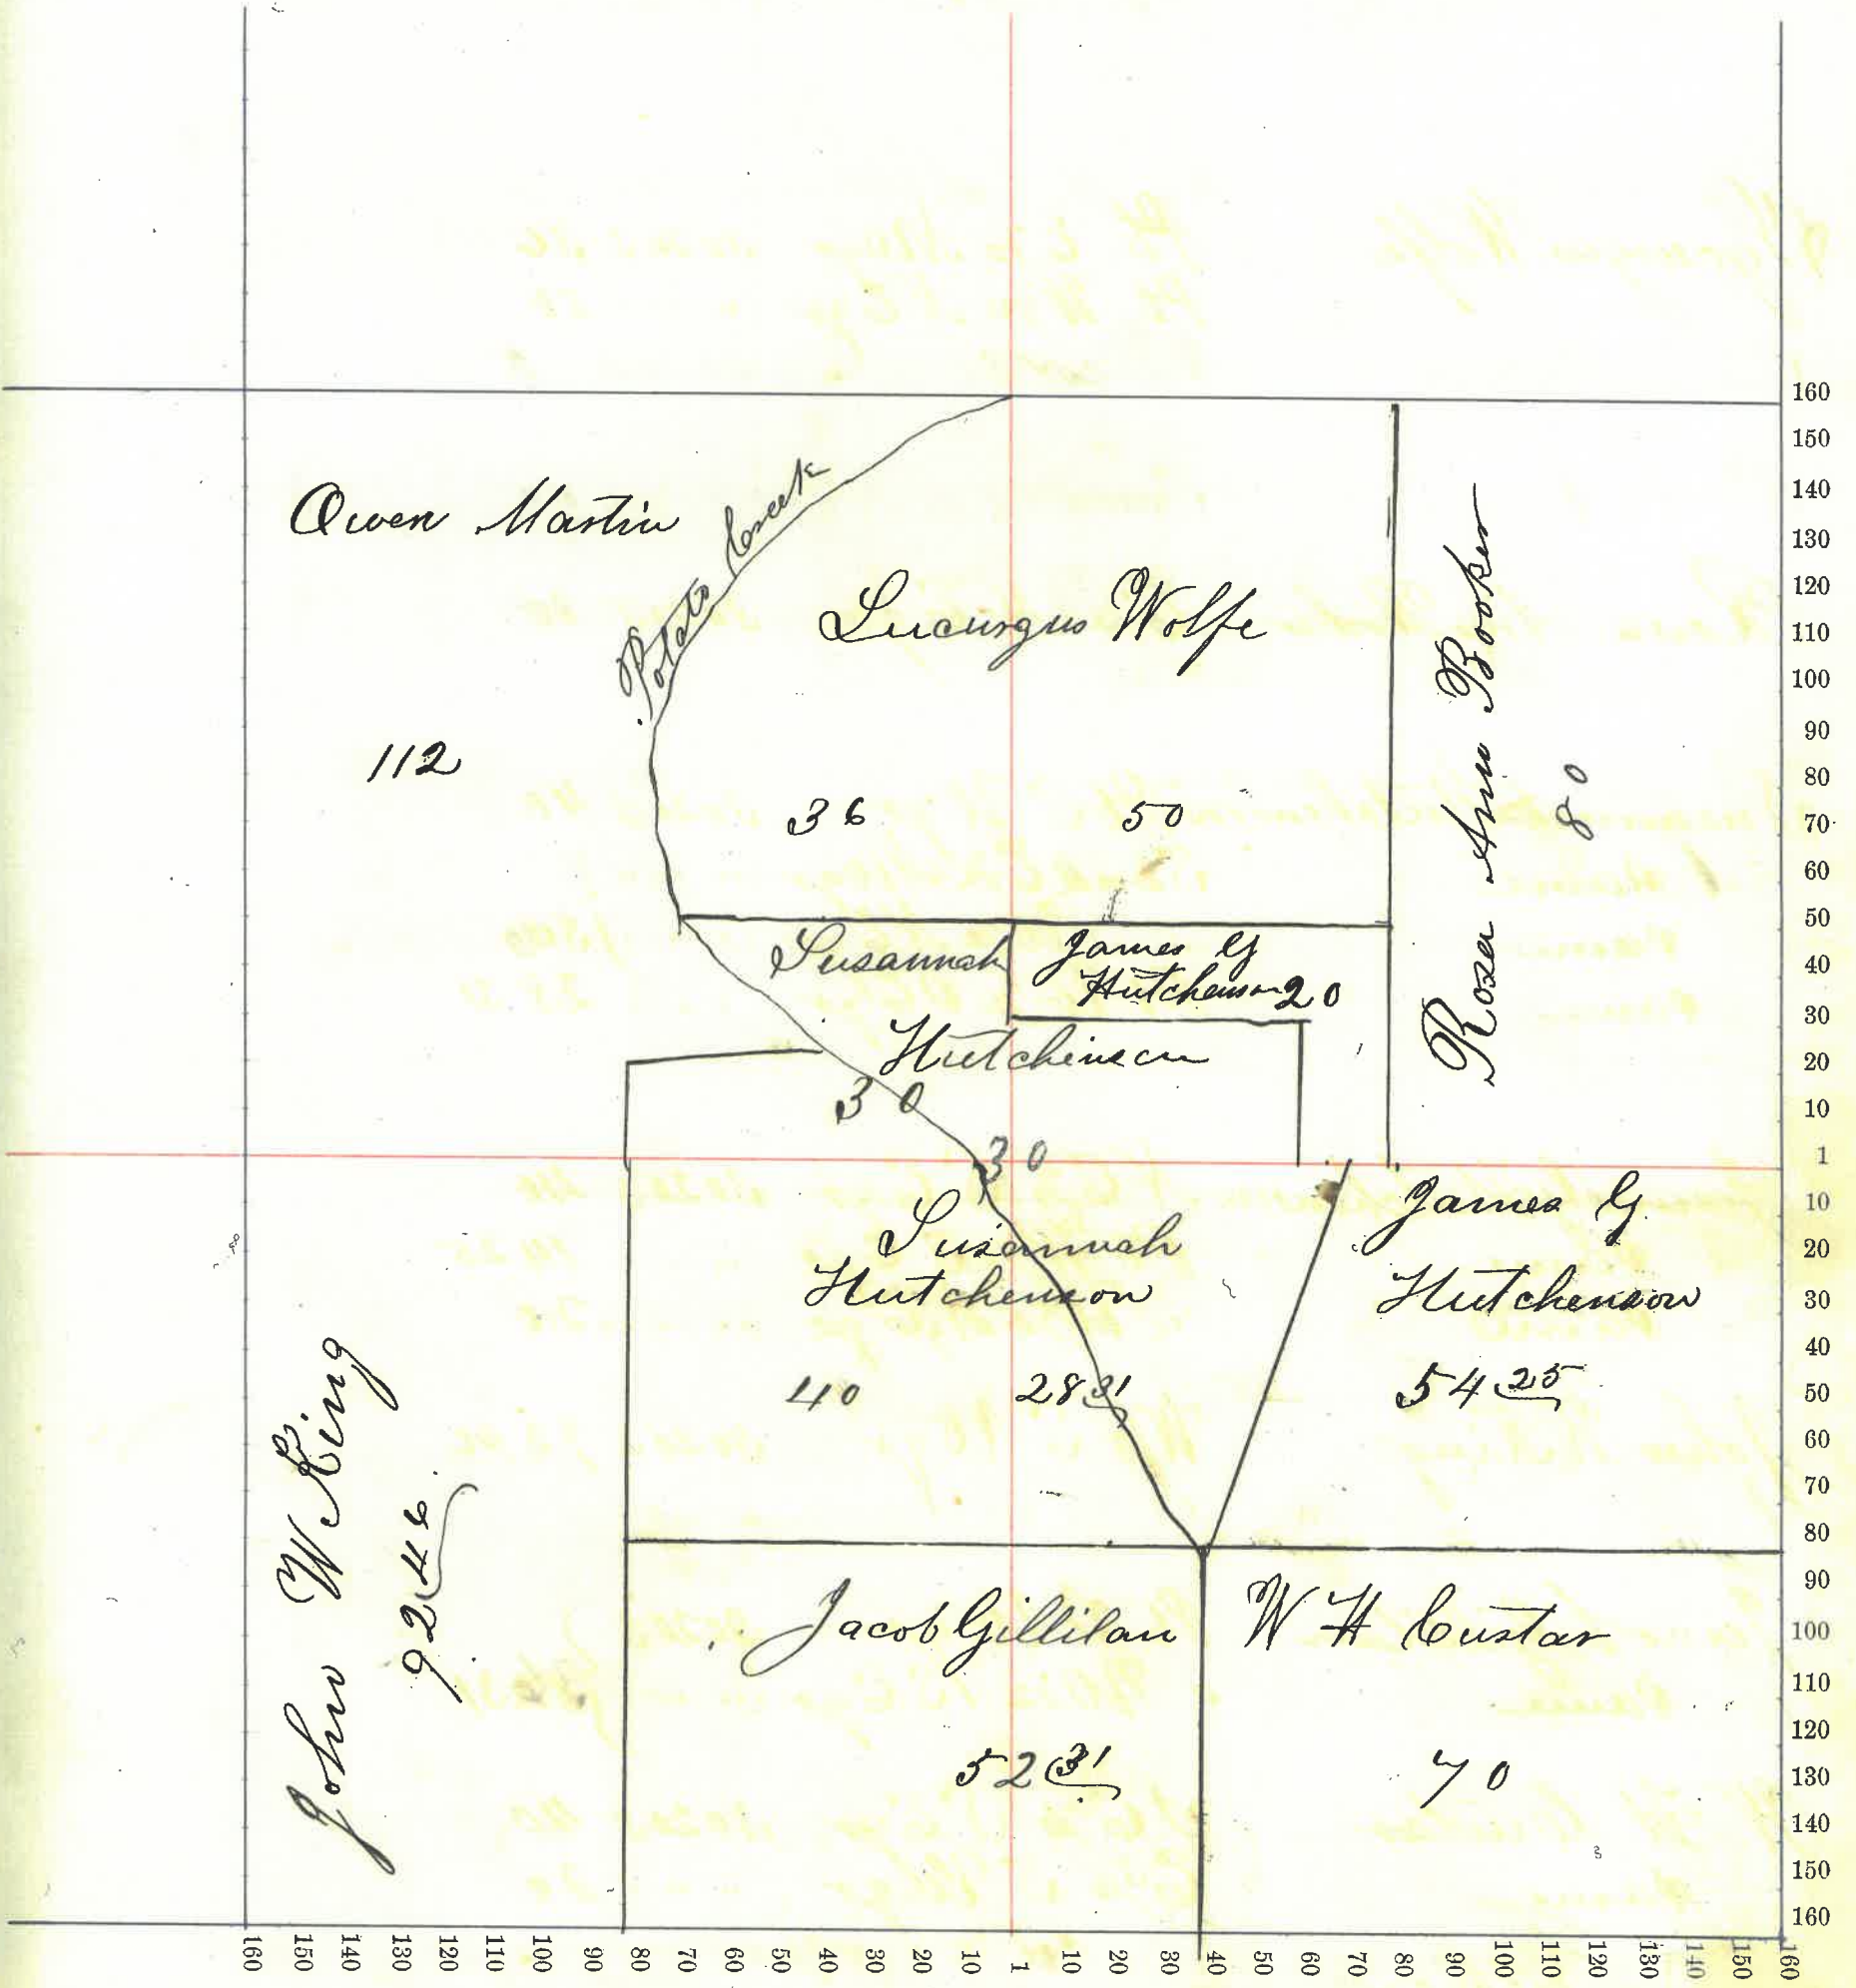 Owen Martin
112
Potato Creek
Lucurgus Wolfe
36 50
Rosa Ann Booker
80
Susannah
Hutchinson
30
30
James G
Hutchenson 20
Susannah
Hutchenson
40 28 31
James G.
Hutchenson
54 25
John W King
92 46
Jacob Gillilan
52 31
W H Custar
70
160
150
140
130
120
110
100
90
80
70
60
50
40
30
20
10
1
10
20
30
40
50
60
70
80
90
100
110
120
130
140
150
160
160 150 140 130 120 110 100 90 80 70 60 50 40 30 20 10 1 10 20 30 40 50 60 70 80 90 100 110 120 130 140 150 160